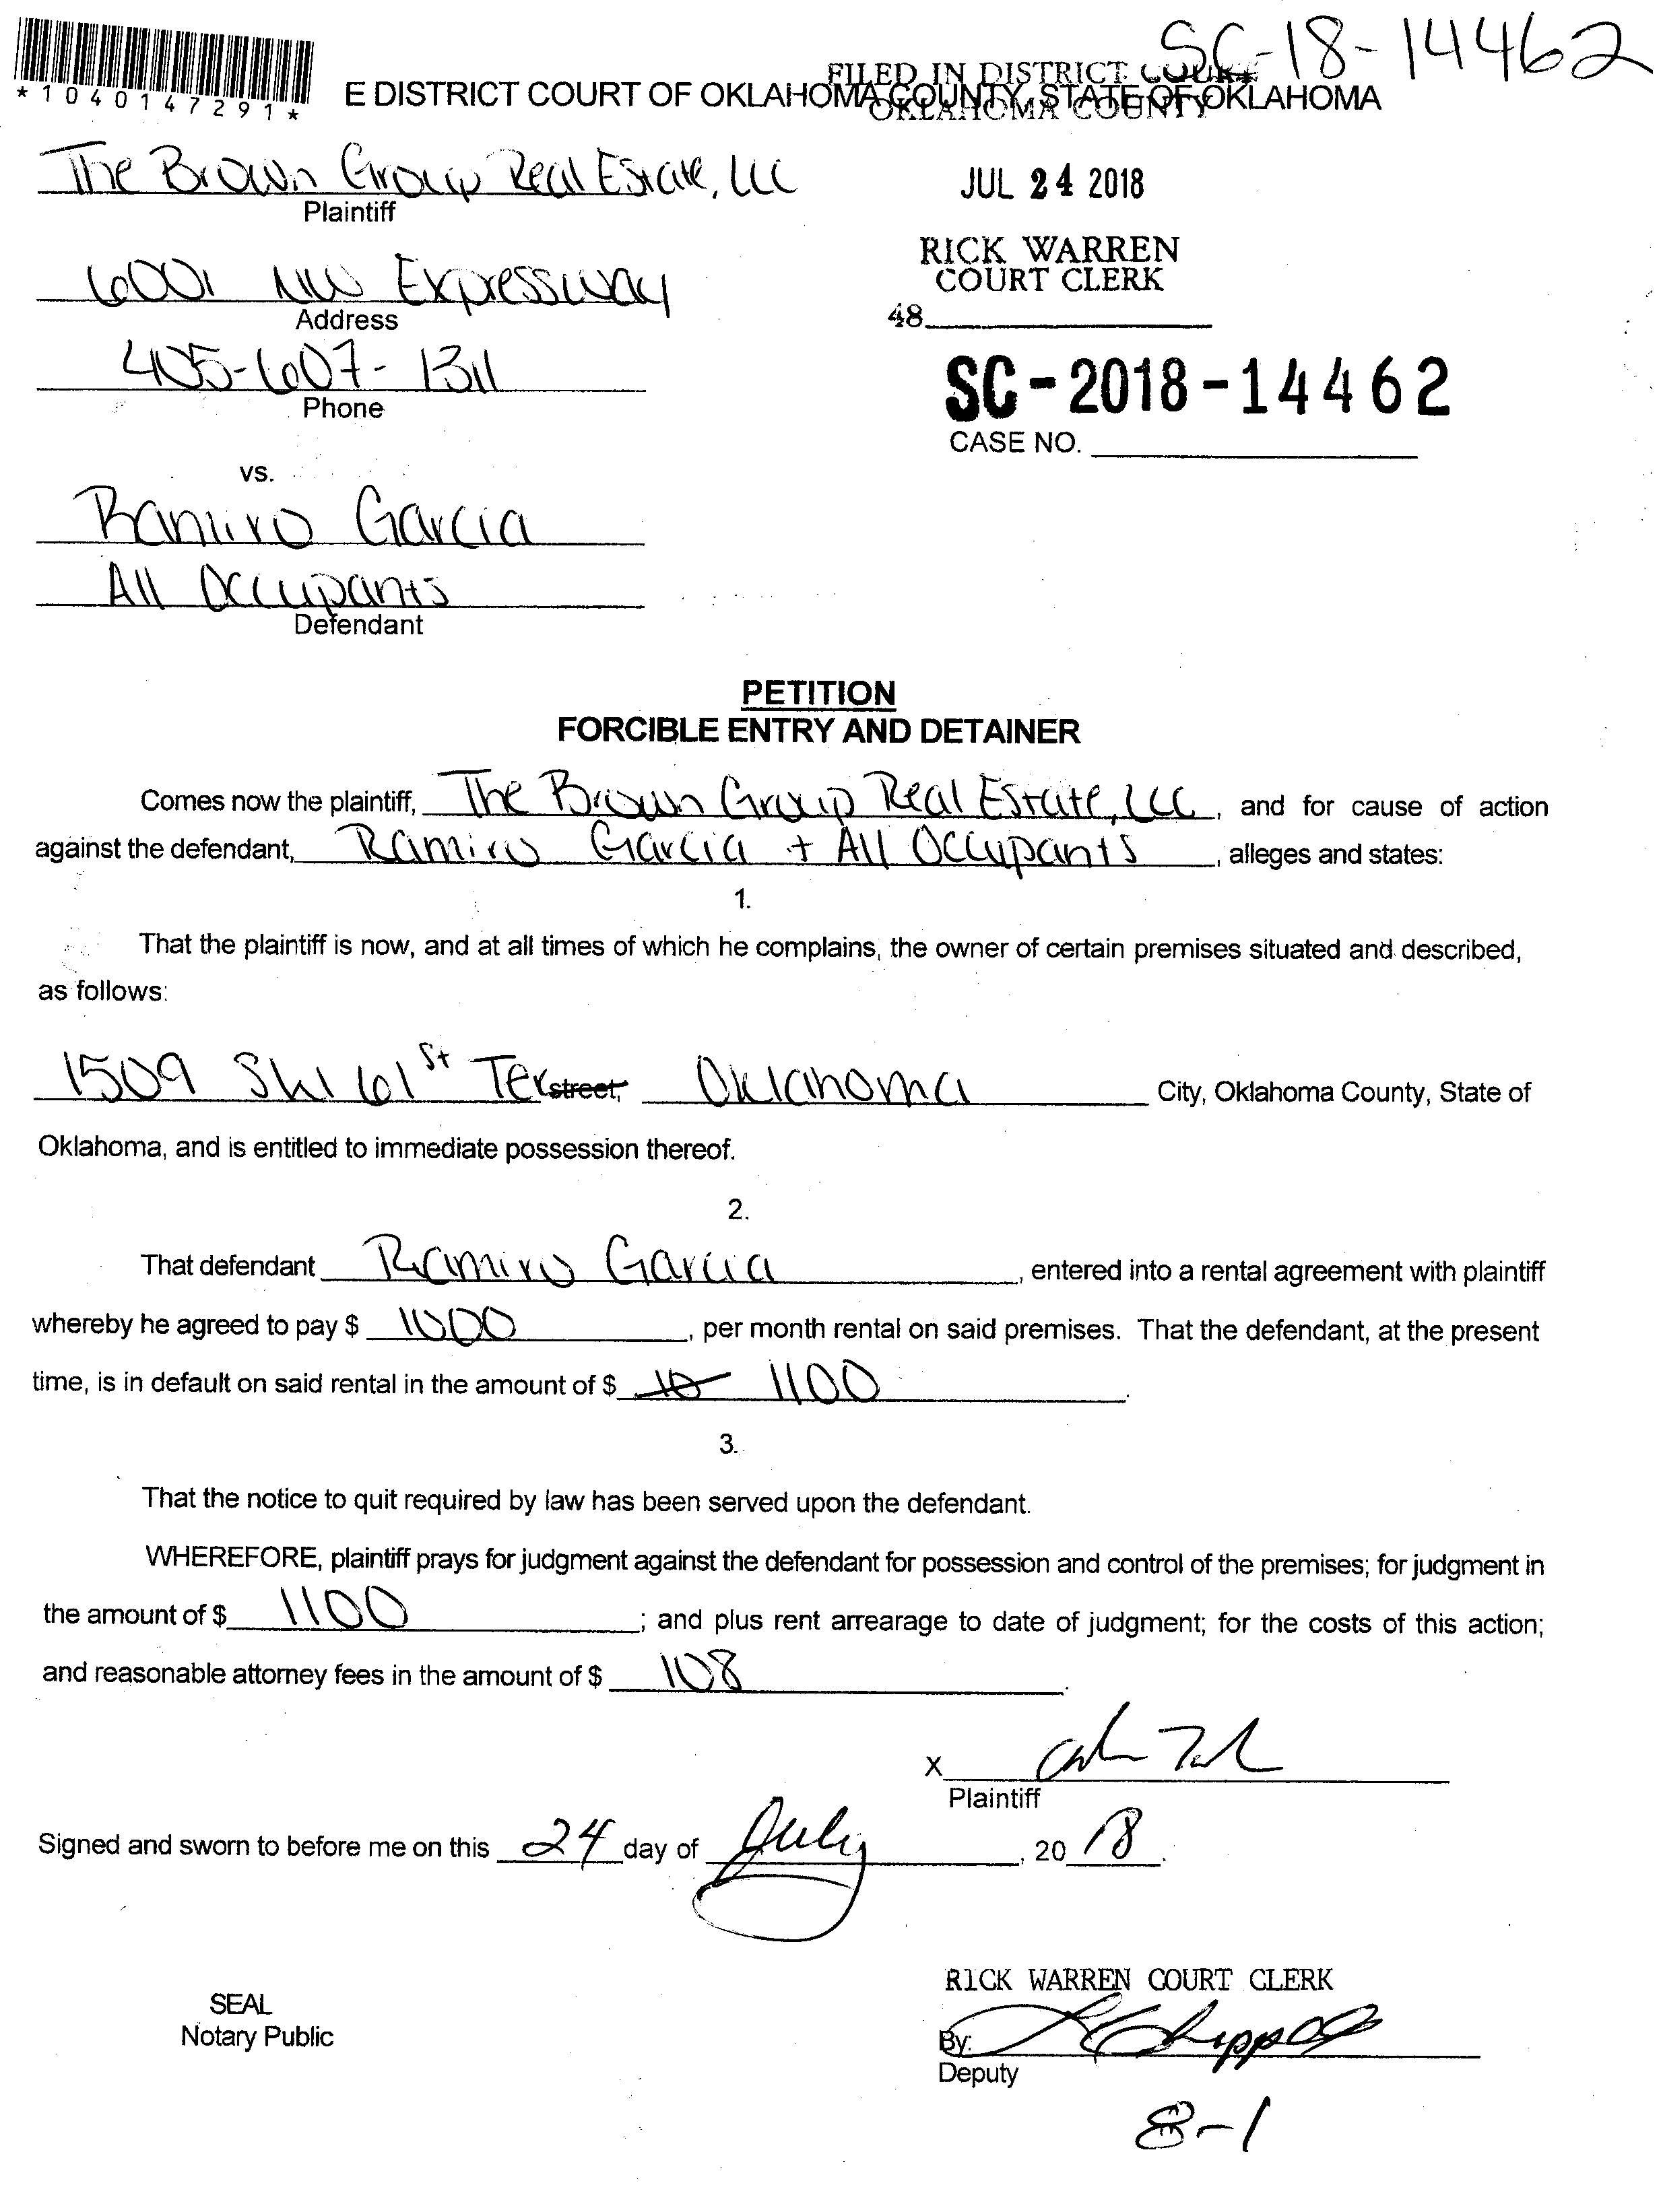 SC-18-14462
*1040147291*
E DISTRICT COURT OF OKLAHOMA COUNTY, STATE OF OKLAHOMA
FILED IN DISTRICT COURT
OKLAHOMA COUNTY
The Brown Group Real Estate, LLC
Plaintiff
JUL 24 2018
RICK WARREN
COURT CLERK
48
6001 NW Expressway
Address
405-607-1311
Phone
SC-2018-14462
CASE NO.
vs.
Ramiro Garcia
All Occupants
Defendant
PETITION
FORCIBLE ENTRY AND DETAINER
Comes now the plaintiff, The Brown Group Real Estate, LLC, and for cause of action
against the defendant, Ramiro Garcia + All Occupants, alleges and states:
1.
That the plaintiff is now, and at all times of which he complains, the owner of certain premises situated and described,
as follows:
1509 SW 61st Ter street, Oklahoma City, Oklahoma County, State of
Oklahoma, and is entitled to immediate possession thereof.
2.
That defendant Ramiro Garcia, entered into a rental agreement with plaintiff
whereby he agreed to pay $ 1000, per month rental on said premises. That the defendant, at the present
time, is in default on said rental in the amount of $ 10 1100.
3.
That the notice to quit required by law has been served upon the defendant.
WHEREFORE, plaintiff prays for judgment against the defendant for possession and control of the premises; for judgment in
the amount of $ 1100; and plus rent arrearage to date of judgment; for the costs of this action;
and reasonable attorney fees in the amount of $ 108.
X
Plaintiff
Signed and sworn to before me on this 24 day of July, 2018.
SEAL
Notary Public
RICK WARREN COURT CLERK
By:
Deputy
8-1